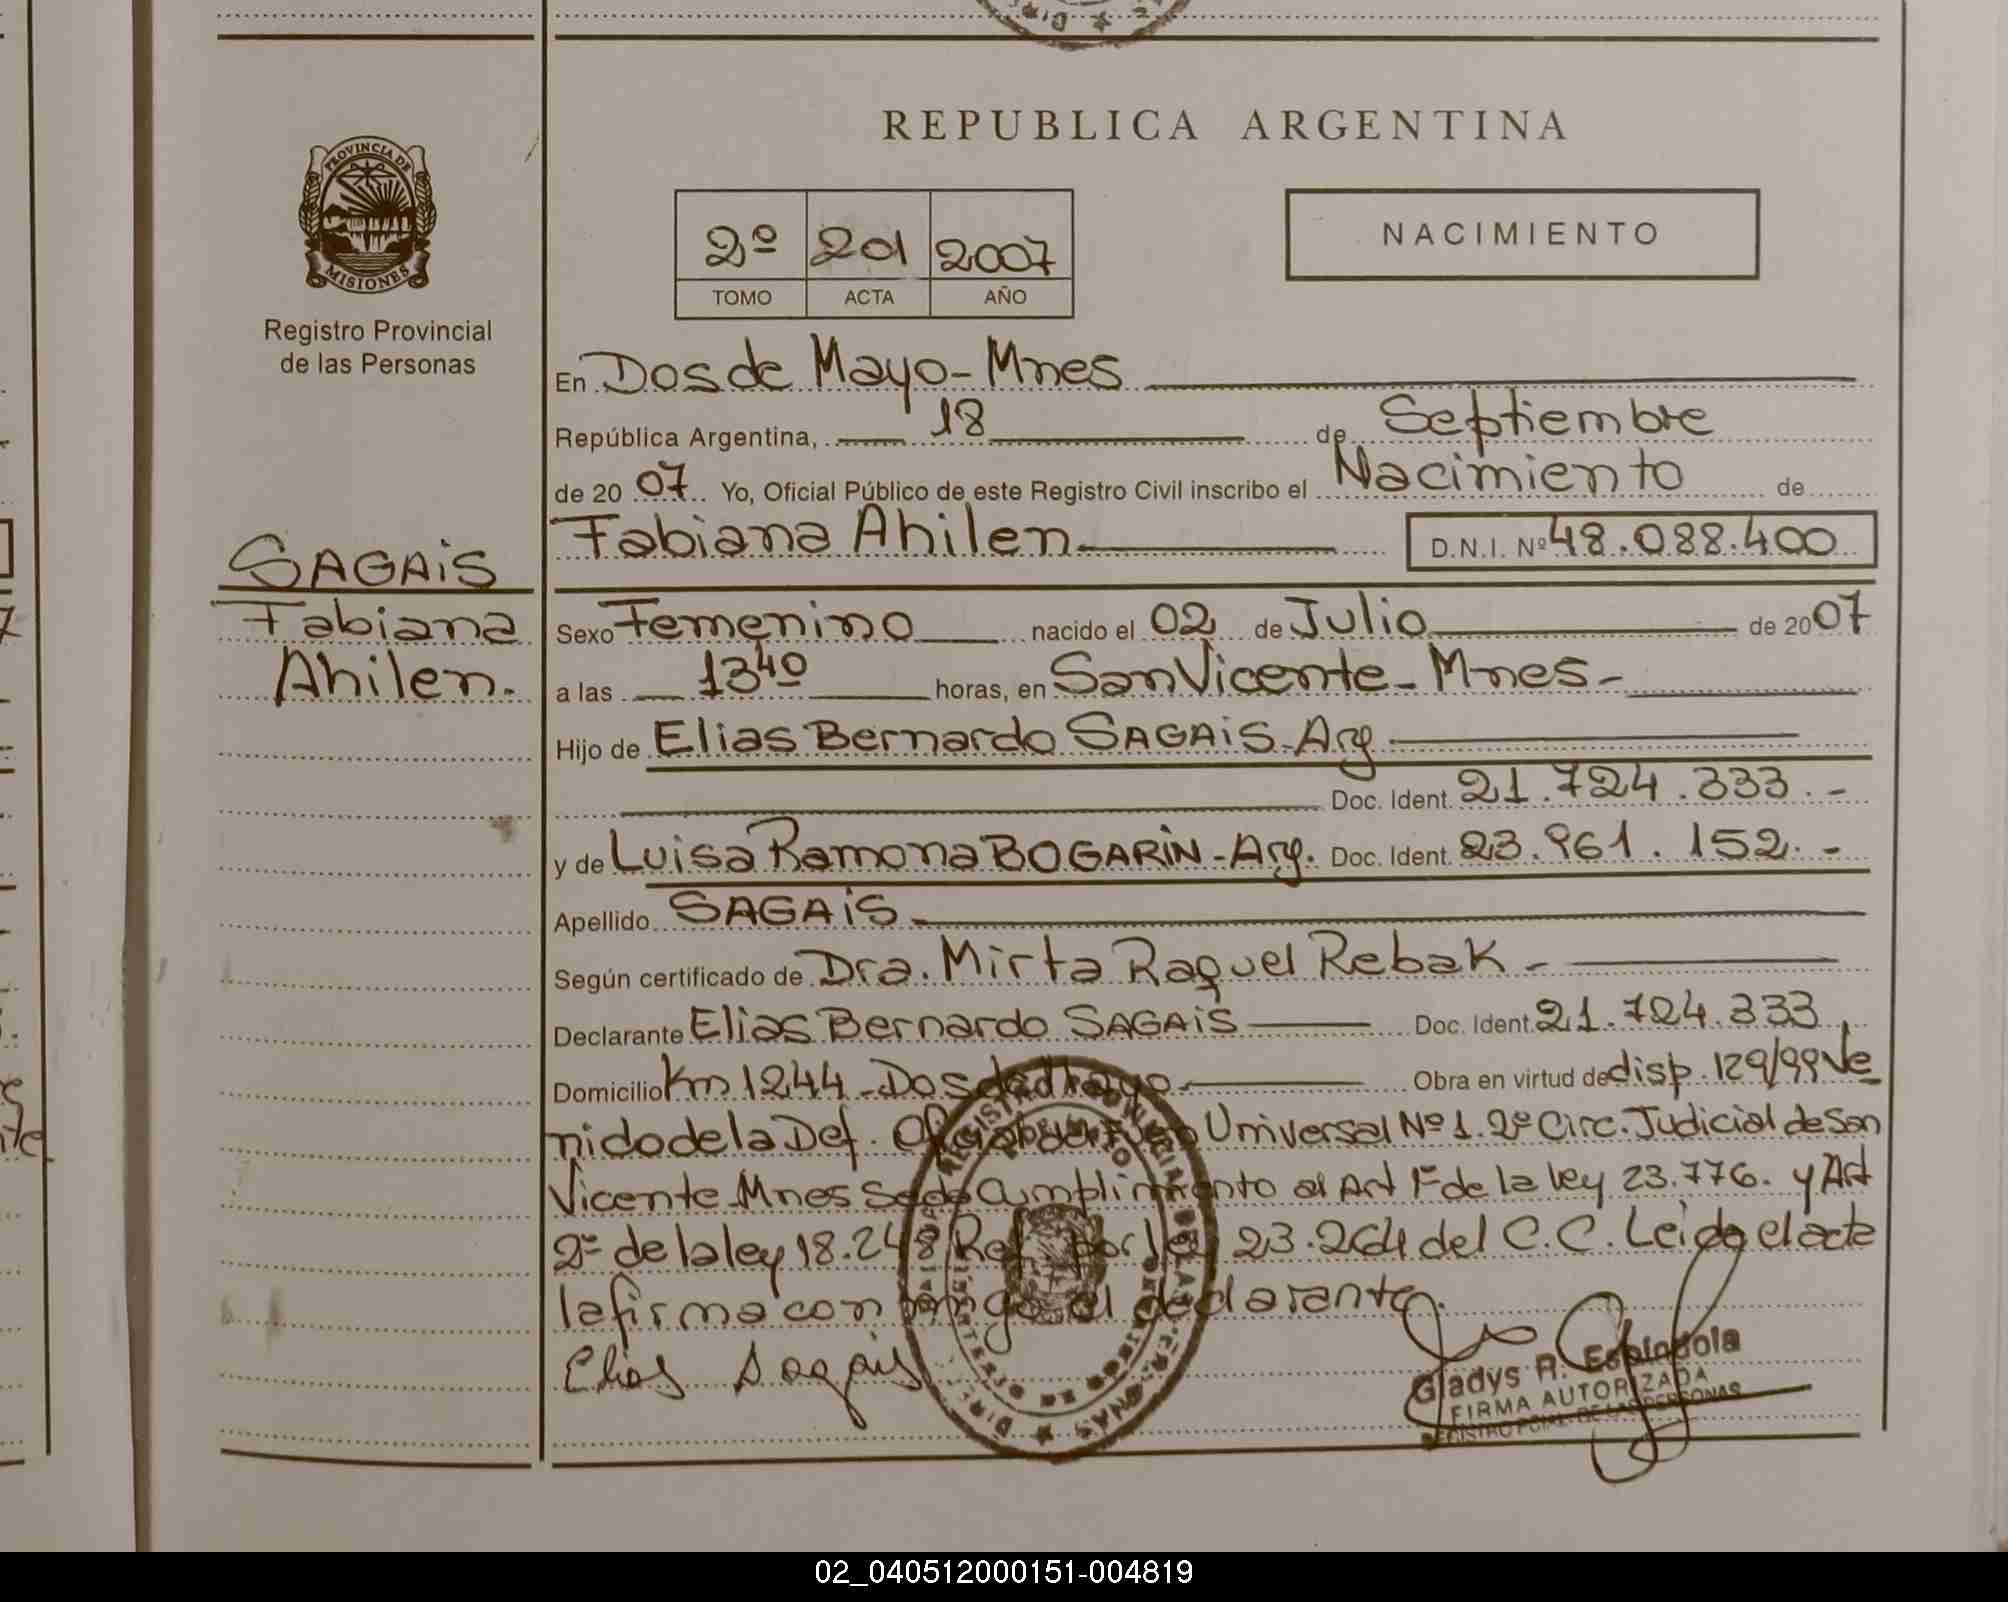 REPUBLICA ARGENTINA
PROVINCIA DE
MISIONES
Registro Provincial
de las Personas
2º 201 2007
TOMO ACTA AÑO
NACIMIENTO
En Dos de Mayo - Mnes
República Argentina, 18 de Septiembre
de 2007 Yo, Oficial Público de este Registro Civil inscribo el Nacimiento de
Fabiana Ahilen D.N.I. Nº 48.088.400
SAGAiS
Fabiana
Ahilen.-
Sexo Femenino nacido el 02 de Julio de 2007
a las 13 40 horas, en San Vicente - Mnes -
Hijo de Elias Bernardo SAGAiS - Arg
Doc. Ident. 21.724.333.-
y de Luisa Ramona BOGARiN - Arg. Doc. Ident. 23.961.152.-
Apellido SAGAiS
Según certificado de Dra. Mirta Raquel Rebak -
Declarante Elias Bernardo SAGAiS Doc. Ident. 21.724.333
Domicilio Km 1244 - Dos de Mayo Obra en virtud de disp. 129/99 Ve
nido de la Def. Oficial del Fuero Universal Nº 1. 2º Circ. Judicial de San
Vicente Mnes Se da Cumplimiento al Art 1º de la ley 23.776. y Art
2º de la ley 18.248 Ref. por ley 23.264 del C.C. Leida el acta
la firma conmigo el declarante.
Elias Sagais
Gladys R. Espindola
FIRMA AUTORIZADA
02_040512000151-004819